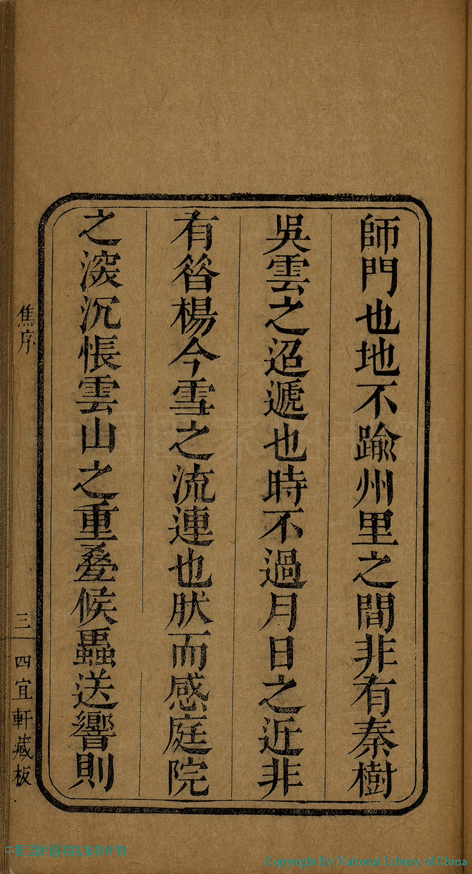 師門也地不踰州里之間非有秦樹
吳雲之迢遞也時不過月日之近非
有昝楊今雪之流連也肰而感庭院
之深沉悵雲山之重疊候蟲送響則
焦序
三
四宜軒藏板
Copyright by National Library of China